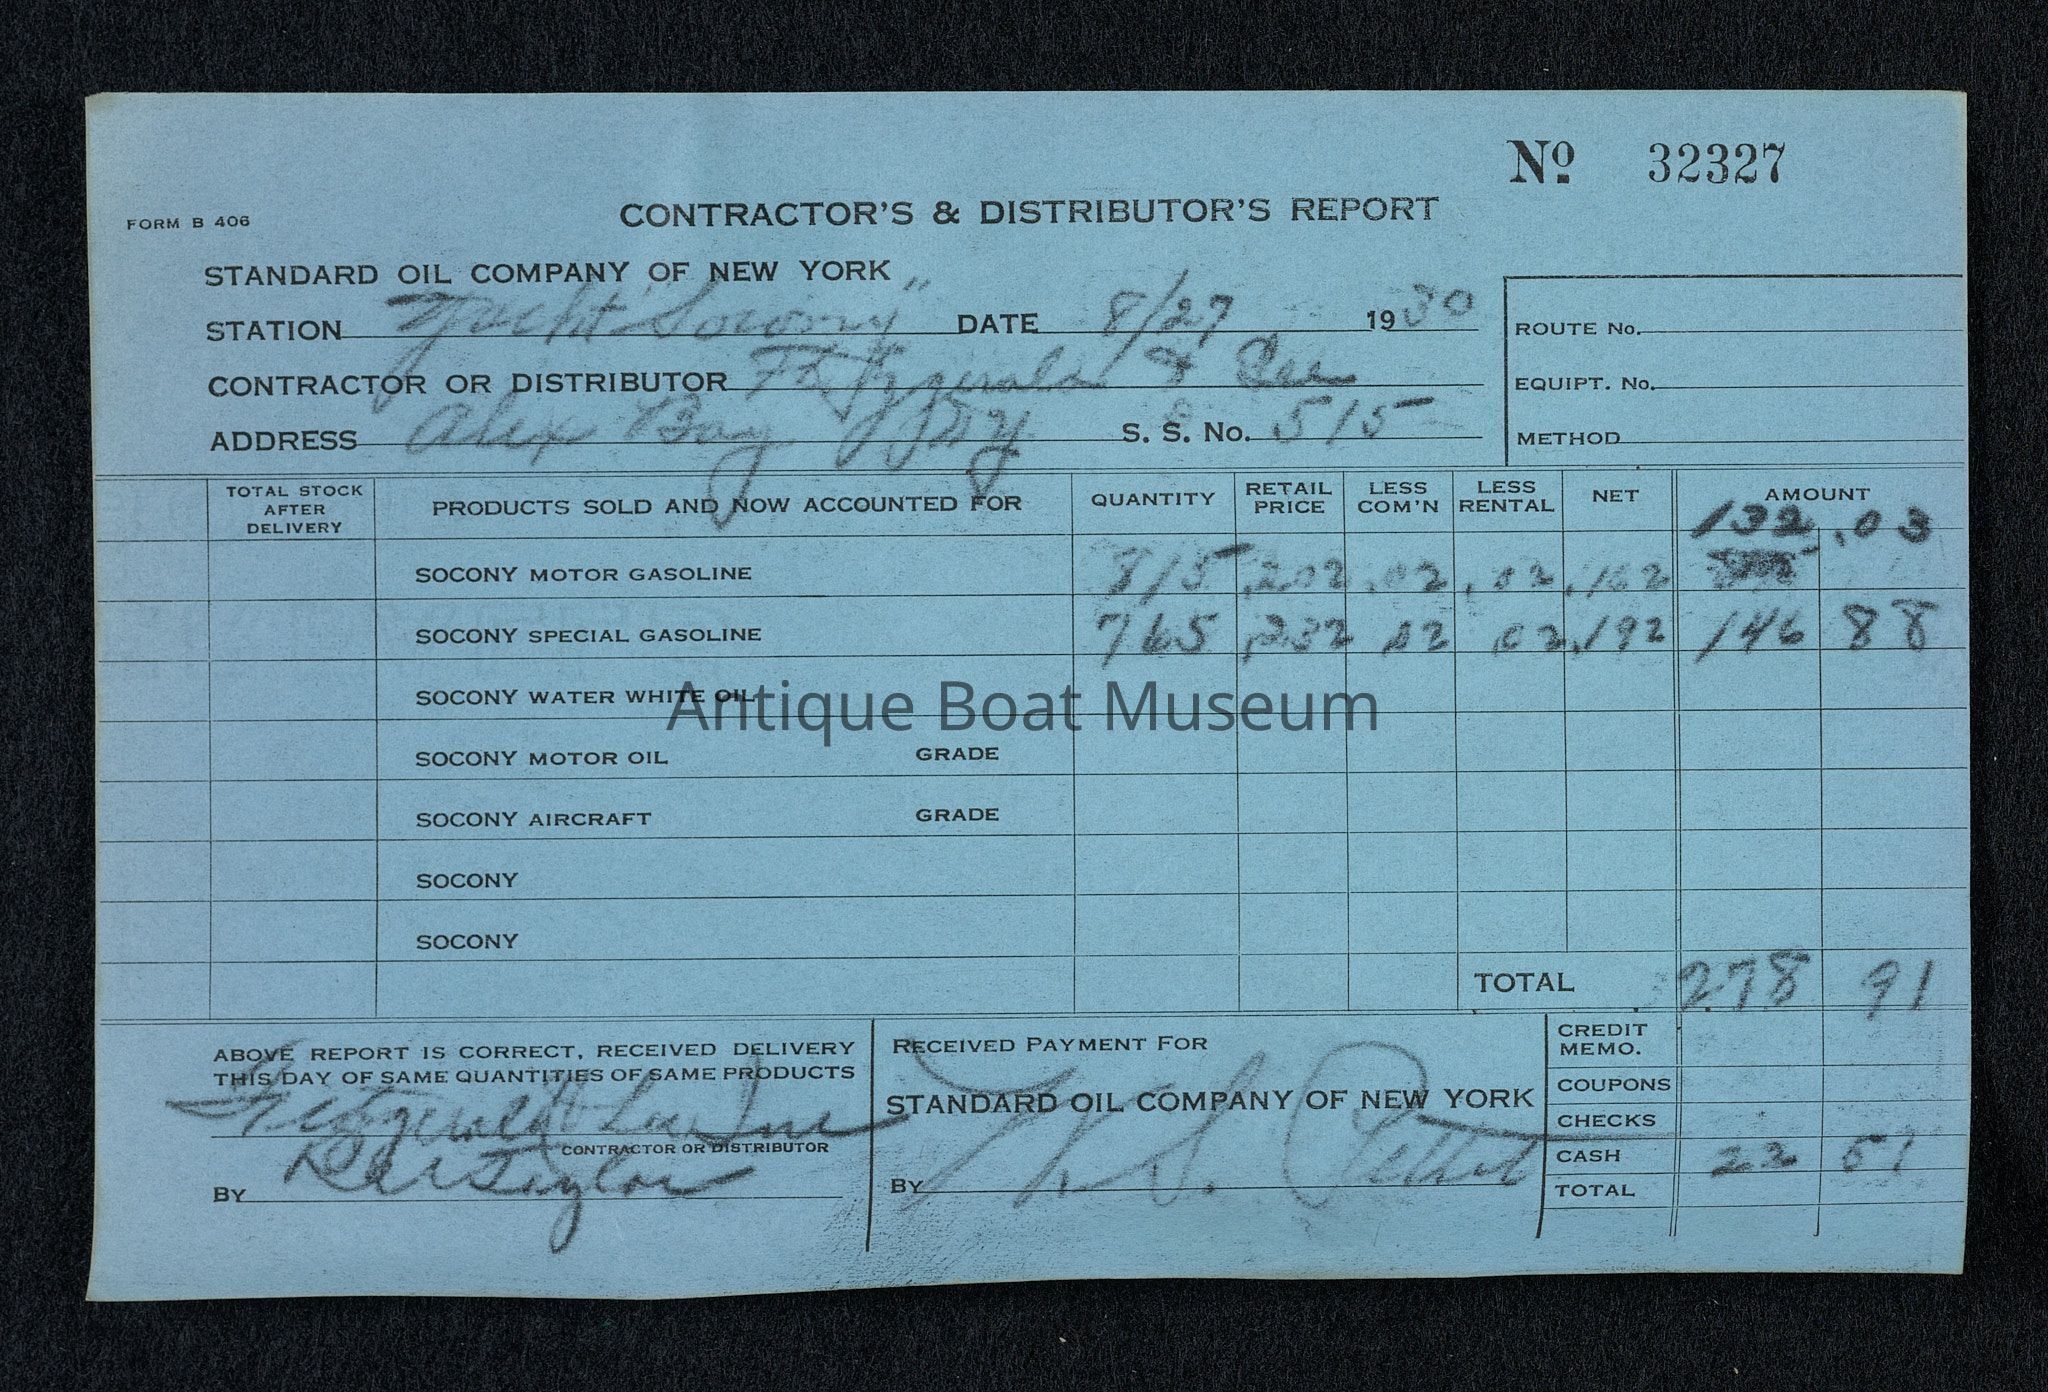 Nº 32327
FORM B 406
CONTRACTOR'S & DISTRIBUTOR'S REPORT
STANDARD OIL COMPANY OF NEW YORK
STATION Yacht "Socony" DATE 8/27 1930
ROUTE No.
CONTRACTOR OR DISTRIBUTOR Fitzgerald & Lee
EQUIPT. No.
ADDRESS Alex Bay NY S. S. No. 515
METHOD
TOTAL STOCK AFTER DELIVERY PRODUCTS SOLD AND NOW ACCOUNTED FOR QUANTITY RETAIL PRICE LESS COM'N LESS RENTAL NET AMOUNT
SOCONY MOTOR GASOLINE 815 .202 .02 .02 .162 132.03
SOCONY SPECIAL GASOLINE 765 .232 .02 .02 .192 146 88
SOCONY WATER WHITE OIL
Antique Boat Museum
SOCONY MOTOR OIL GRADE
SOCONY AIRCRAFT GRADE
SOCONY
SOCONY
TOTAL 278 91
ABOVE REPORT IS CORRECT, RECEIVED DELIVERY
THIS DAY OF SAME QUANTITIES OF SAME PRODUCTS
Fitzgerald & Lee Inc
CONTRACTOR OR DISTRIBUTOR
BY Taylor
RECEIVED PAYMENT FOR
STANDARD OIL COMPANY OF NEW YORK
BY
CREDIT MEMO.
COUPONS
CHECKS
CASH 22 51
TOTAL